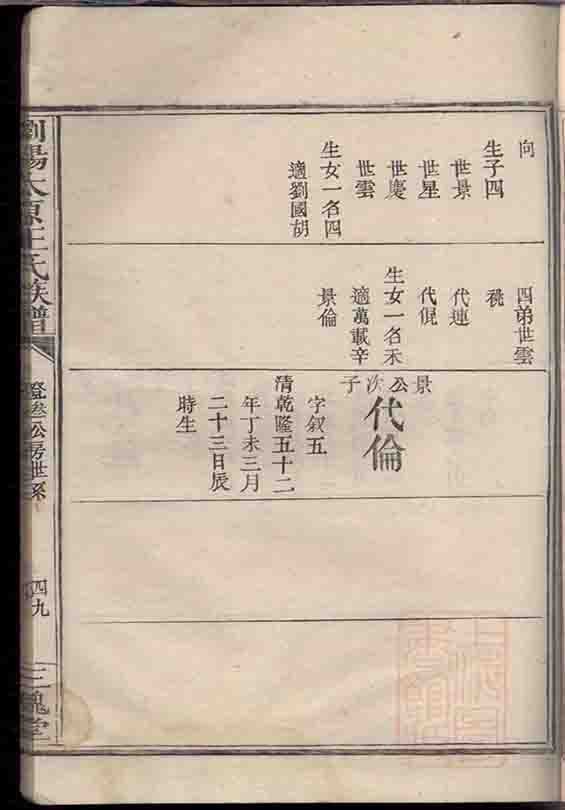 向
生子四
世景
世星
世慶
世雲
生女一名四
適劉國胡
四弟世雲
祧
代連
代倱
生女一名禾
適萬載辛
景倫
景公次子
代倫
字叙五
清乾隆五十二
年丁未三月
二十三日辰
時生
瀏陽太原王氏族譜
登叁公房世系
四九
三槐堂